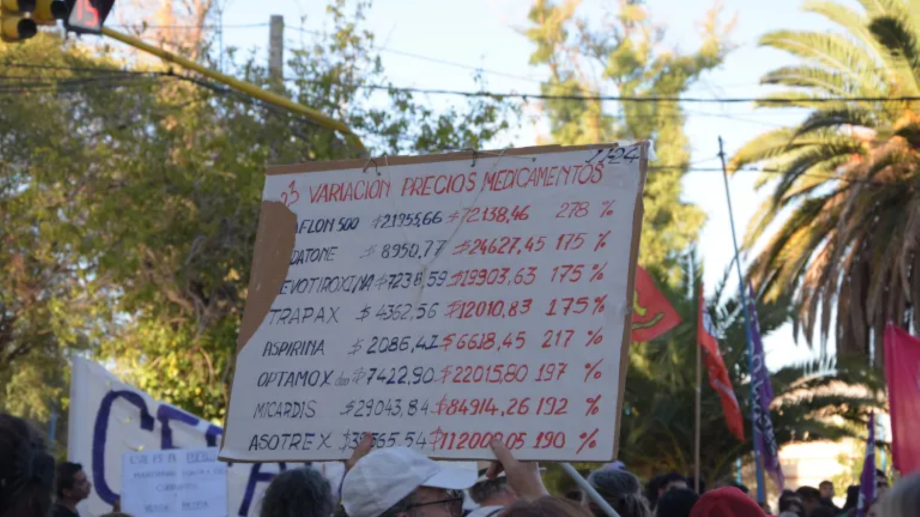 23 VARIACION PRECIOS MEDICAMENTOS 1/24
AFLON 500 $21955,66 $72138,46 278 %
DATONE $8950,77 $24627,45 175 %
EVOTIROXINA $7238,59 $19903,63 175 %
TRAPAX $4362,56 $12010,83 175 %
ASPIRINA $2086,47 $6618,45 217 %
OPTAMOX duo $7422,90 $22015,80 197 %
MICARDIS $29043,84 $84914,26 192 %
ASOTREX 565,54 $112009,05 190 %